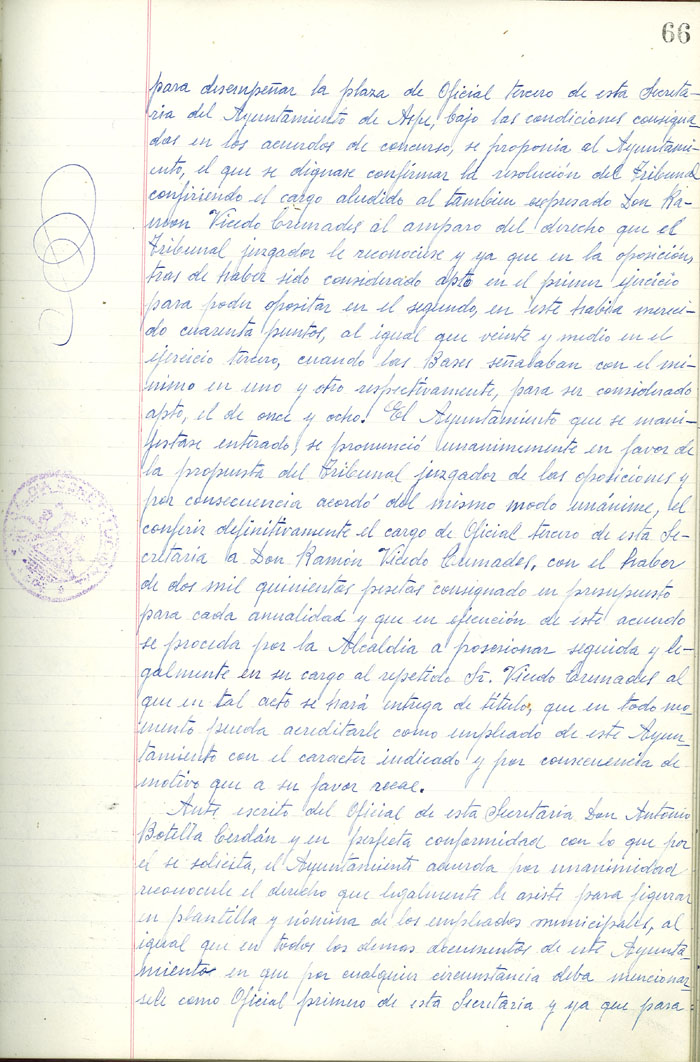 66
para desempeñar la plaza de Oficial tercero de esta Secreta-
ria del Ayuntamiento de Aspe, bajo las condiciones consigna
das en los acuerdos de concurso, se proponia al Ayuntami-
ento, el que se dignase confirmar la resolución del Tribunal
confiriendo el cargo aludido al tambien expresado Don Ra-
mon Vicedo Cremades al amparo del derecho que el
Tribunal juzgador le reconociese y ya que en la oposición,
tras de haber sido considerado apto en el primer ejercicio
para poder opositar en el segundo, en este habia mereci-
do cuarenta puntos, al igual que veinte y medio en el
ejercicio tercero, cuando las Bases señalaban con el mi-
nimo en uno y otro respectivamente, para ser considerado
apto, el de once y ocho. El Ayuntamiento que se mani-
festase enterado, se pronunció unanimemente en favor de
la propuesta del Tribunal juzgador de las oposiciones y
por consecuencia acordó del mismo modo unánime, el
conferir definitivamente el cargo de Oficial tercero de esta Se-
cretaria a Don Ramón Vicedo Cremades, con el haber
de dos mil quinientas pesetas consignado en presupuesto
para cada anualidad y que en ejecución de este acuerdo
se proceda por la Alcaldia a posesionar seguida y le-
galmente en su cargo al repetido Sr. Vicedo Cremades al
que en tal acto se hará entrega de titulo, que en todo mo-
mento pueda acreditarle como empleado de este Ayun-
tamiento con el caracter indicado y por consecuencia de
motivo que a su favor recae.
Ante escrito del Oficial de esta Secretaria Don Antonio
Botella Cerdán y en perfecta conformidad con lo que por
él se solicita, el Ayuntamiento acuerda por unanimidad
reconocerle el derecho que legalmente le asiste para figurar
en plantilla y nómina de los empleados municipales, al
igual que en todos los demas documentos de este Ayunta
mientos en que por cualquier circunstancia deba mencionar
sele como Oficial primero de esta Secretaria y ya que para